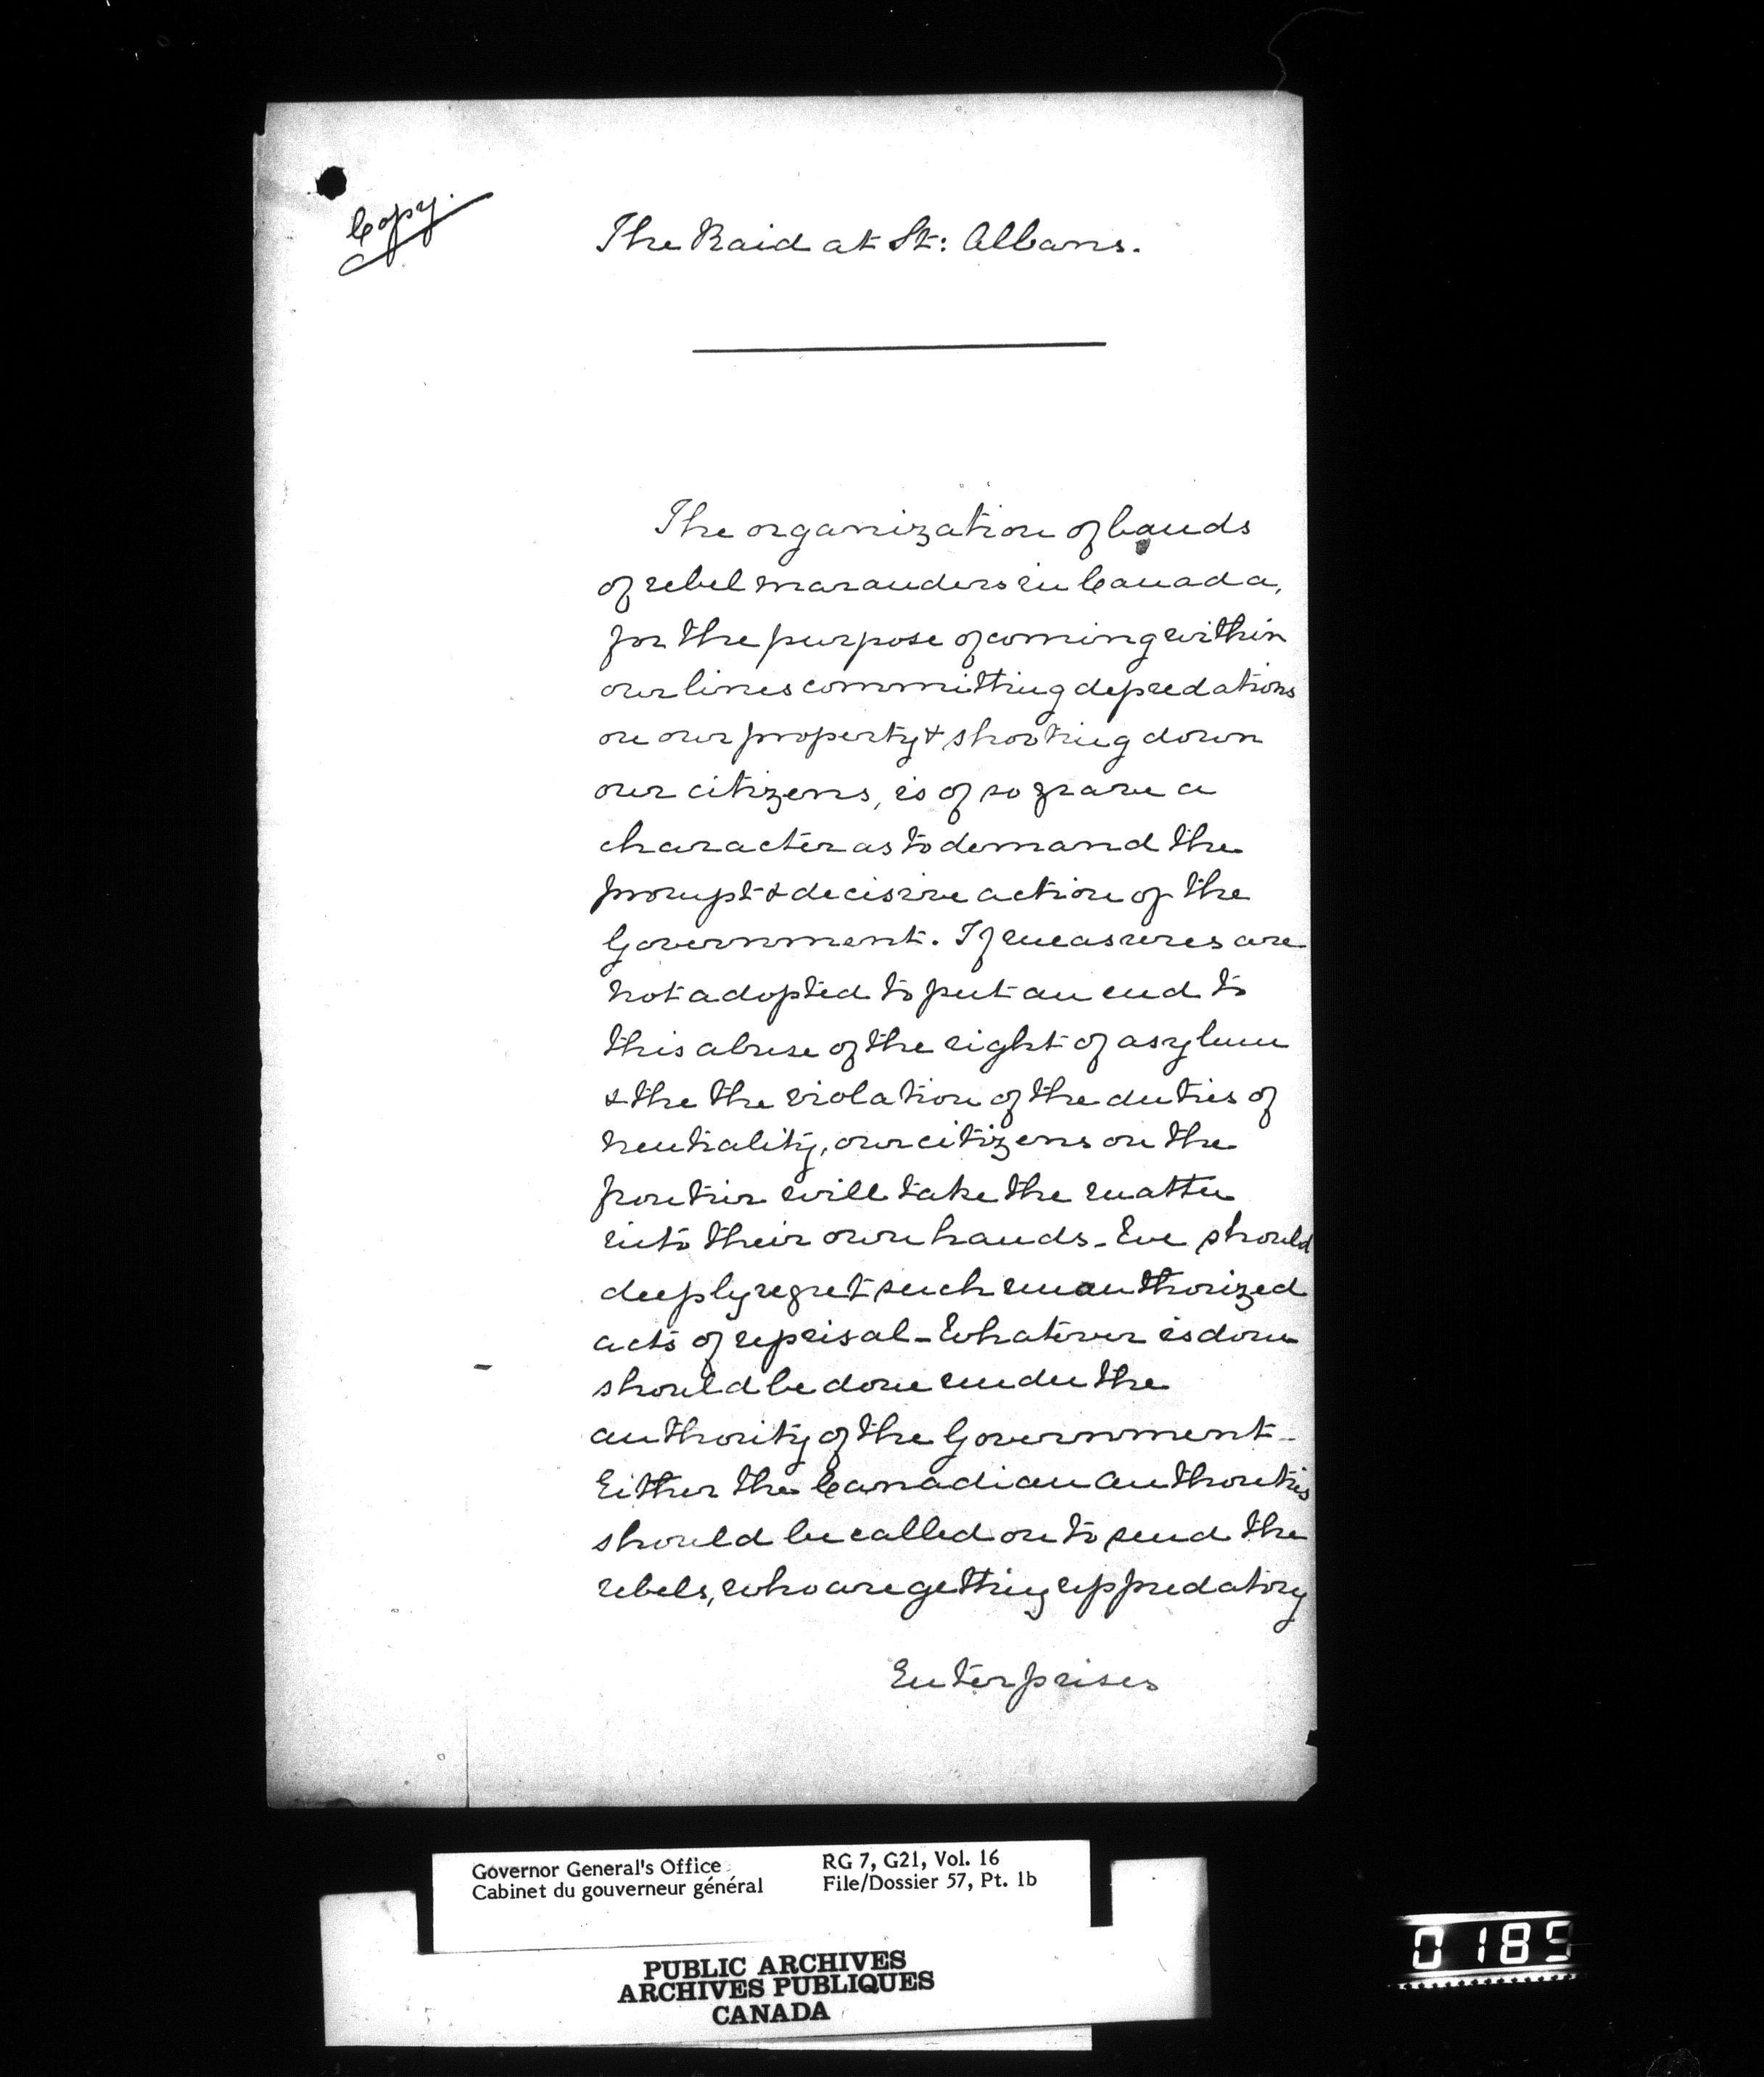 Copy.
The Raid at St: Albans.
The organization of bands
of rebel marauders in Canada,
for the purpose of coming within
our lines committing depredations
on our property & shooting down
our citizens, is of so grave a
character as to demand the
prompt & decisive action of the
Government. If measures are
not adopted to put an end to
this abuse of the right of asylum
& the the violation of the duties of
neutrality, our citizens on the
frontier will take the matter
into their own hands_ We should
deeply regret such unauthorized
acts of reprisal_ Whatever is done
should be done under the
authority of the Government_
Either the Canadian Authorities
should be called on to send the
rebels, who are getting up predatory
Enterprises
Governor General's Office
Cabinet du gouverneur général
RG 7, G21, Vol. 16
File/Dossier 57, Pt. 1b
PUBLIC ARCHIVES
ARCHIVES PUBLIQUES
CANADA
0185